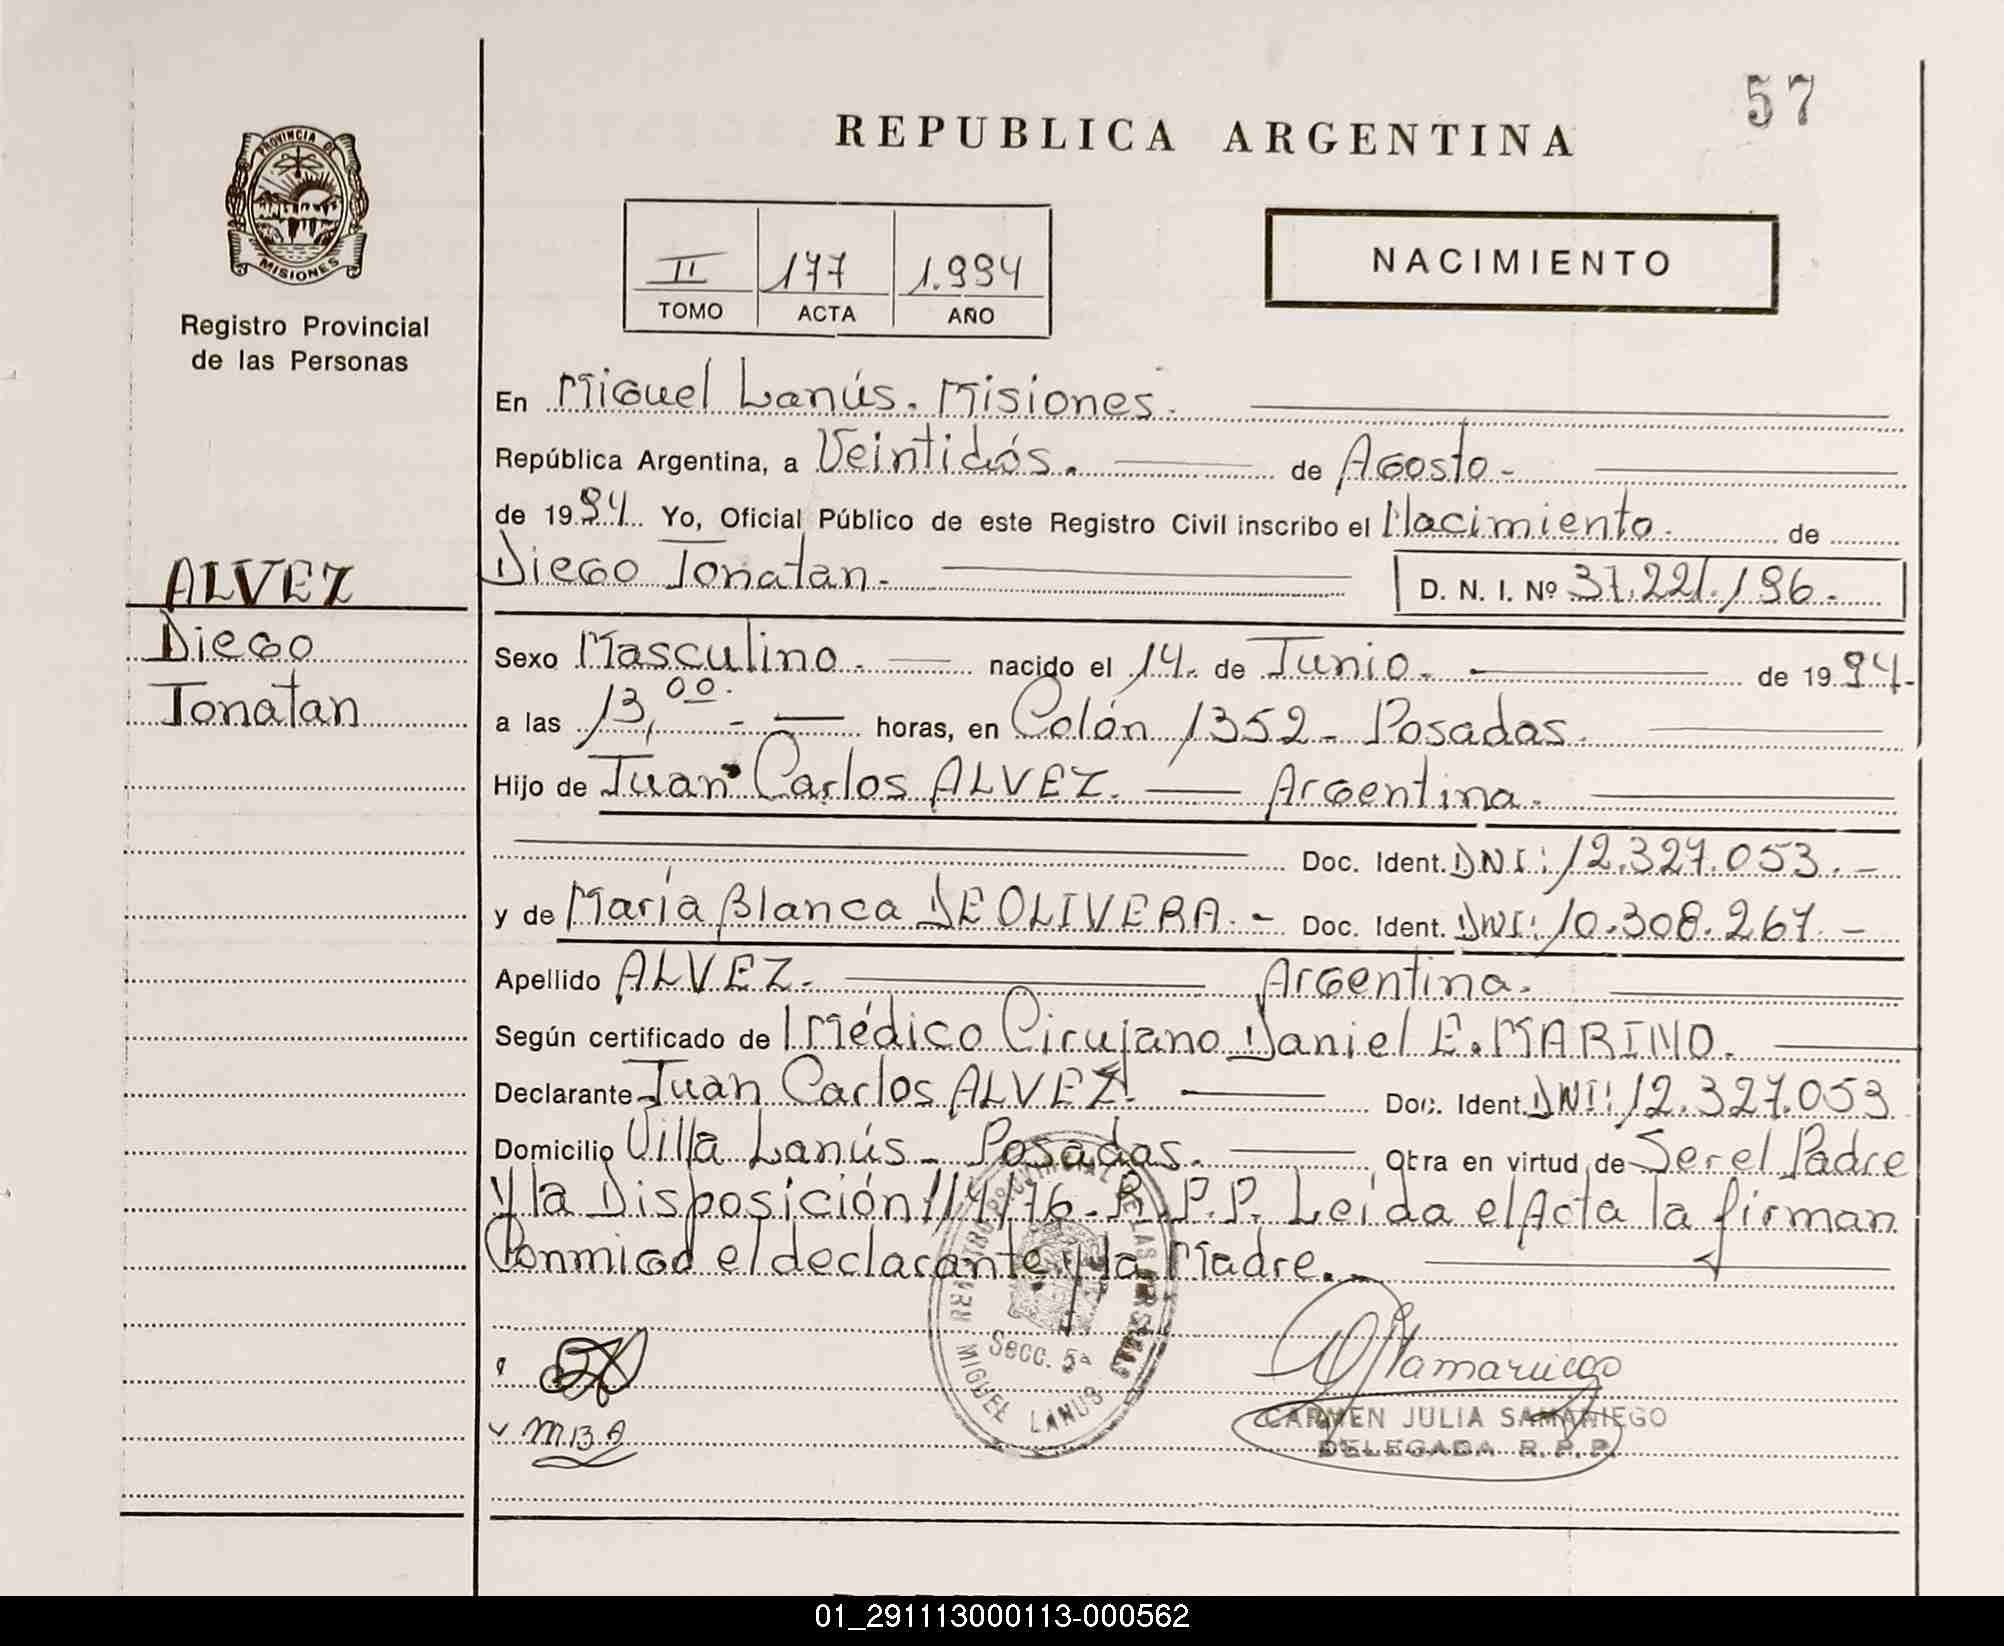 57
REPUBLICA ARGENTINA
PROVINCIA DE
MISIONES
Registro Provincial
de las Personas
II 177 1.994
TOMO ACTA AÑO
NACIMIENTO
En Miguel Lanús. Misiones.
República Argentina, a Veintidós. de Agosto-
de 1994 Yo, Oficial Público de este Registro Civil inscribo el Nacimiento. de
Diego Jonatan.- D. N. I. Nº 37.221.196.-
ALVEZ
Diego
Jonatan
Sexo Masculino.- nacido el 14. de Junio. de 1994.-
a las 13,00.- horas, en Colón 1352- Posadas.
Hijo de Juan Carlos ALVEZ. Argentina.
Doc. Ident. DNI: 12.327.053.-
y de María Blanca DE OLIVERA.- Doc. Ident. DNI: 10.308.267.-
Apellido ALVEZ.- Argentina.
Según certificado de Médico Cirujano Daniel E. MARINO.
Declarante Juan Carlos ALVEZ. Doc. Ident. DNI: 12.327.053
Domicilio Villa Lanús- Posadas. Obra en virtud de Ser el Padre
y la Disposición 114/76- R.P.P. Leída el Acta la firman
Conmigo el declarante y la Madre.
REGISTRO PROVINCIAL DE LAS PERSONAS
Secc. 5ª
MIGUEL LANUS
M B A
CARMEN JULIA SAMANIEGO
DELEGADA R.P.P.
01_291113000113-000562